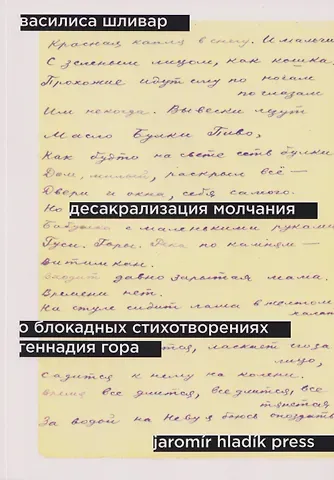 василиса шливар
Красная капля в снегу. И мальчик
С зеленым лицом, как кошка.
Прохожие идут ему по ногам
по глазам
Им некогда. Вывески лезут
Масло Булки Пиво,
Как будто на свете есть булки
Дом, милый, раскрыл всё —
Двери и окна, себя самого.
Но
десакрализация молчания
Бабушка с маленькими руками
Гуси. Горы. Река по камням —
Витимкан.
Входит давно зарытая мама.
Времени нет.
На стуле сидит лама в желтом
халате
о блокадных стихотворениях
геннадия гора
тся, ласкает глаза
лицо,
Садится к нему на колени.
время все длится, все длится, все
тянется
За водой на Неву я боюсь опоздать
jaromír hladík press